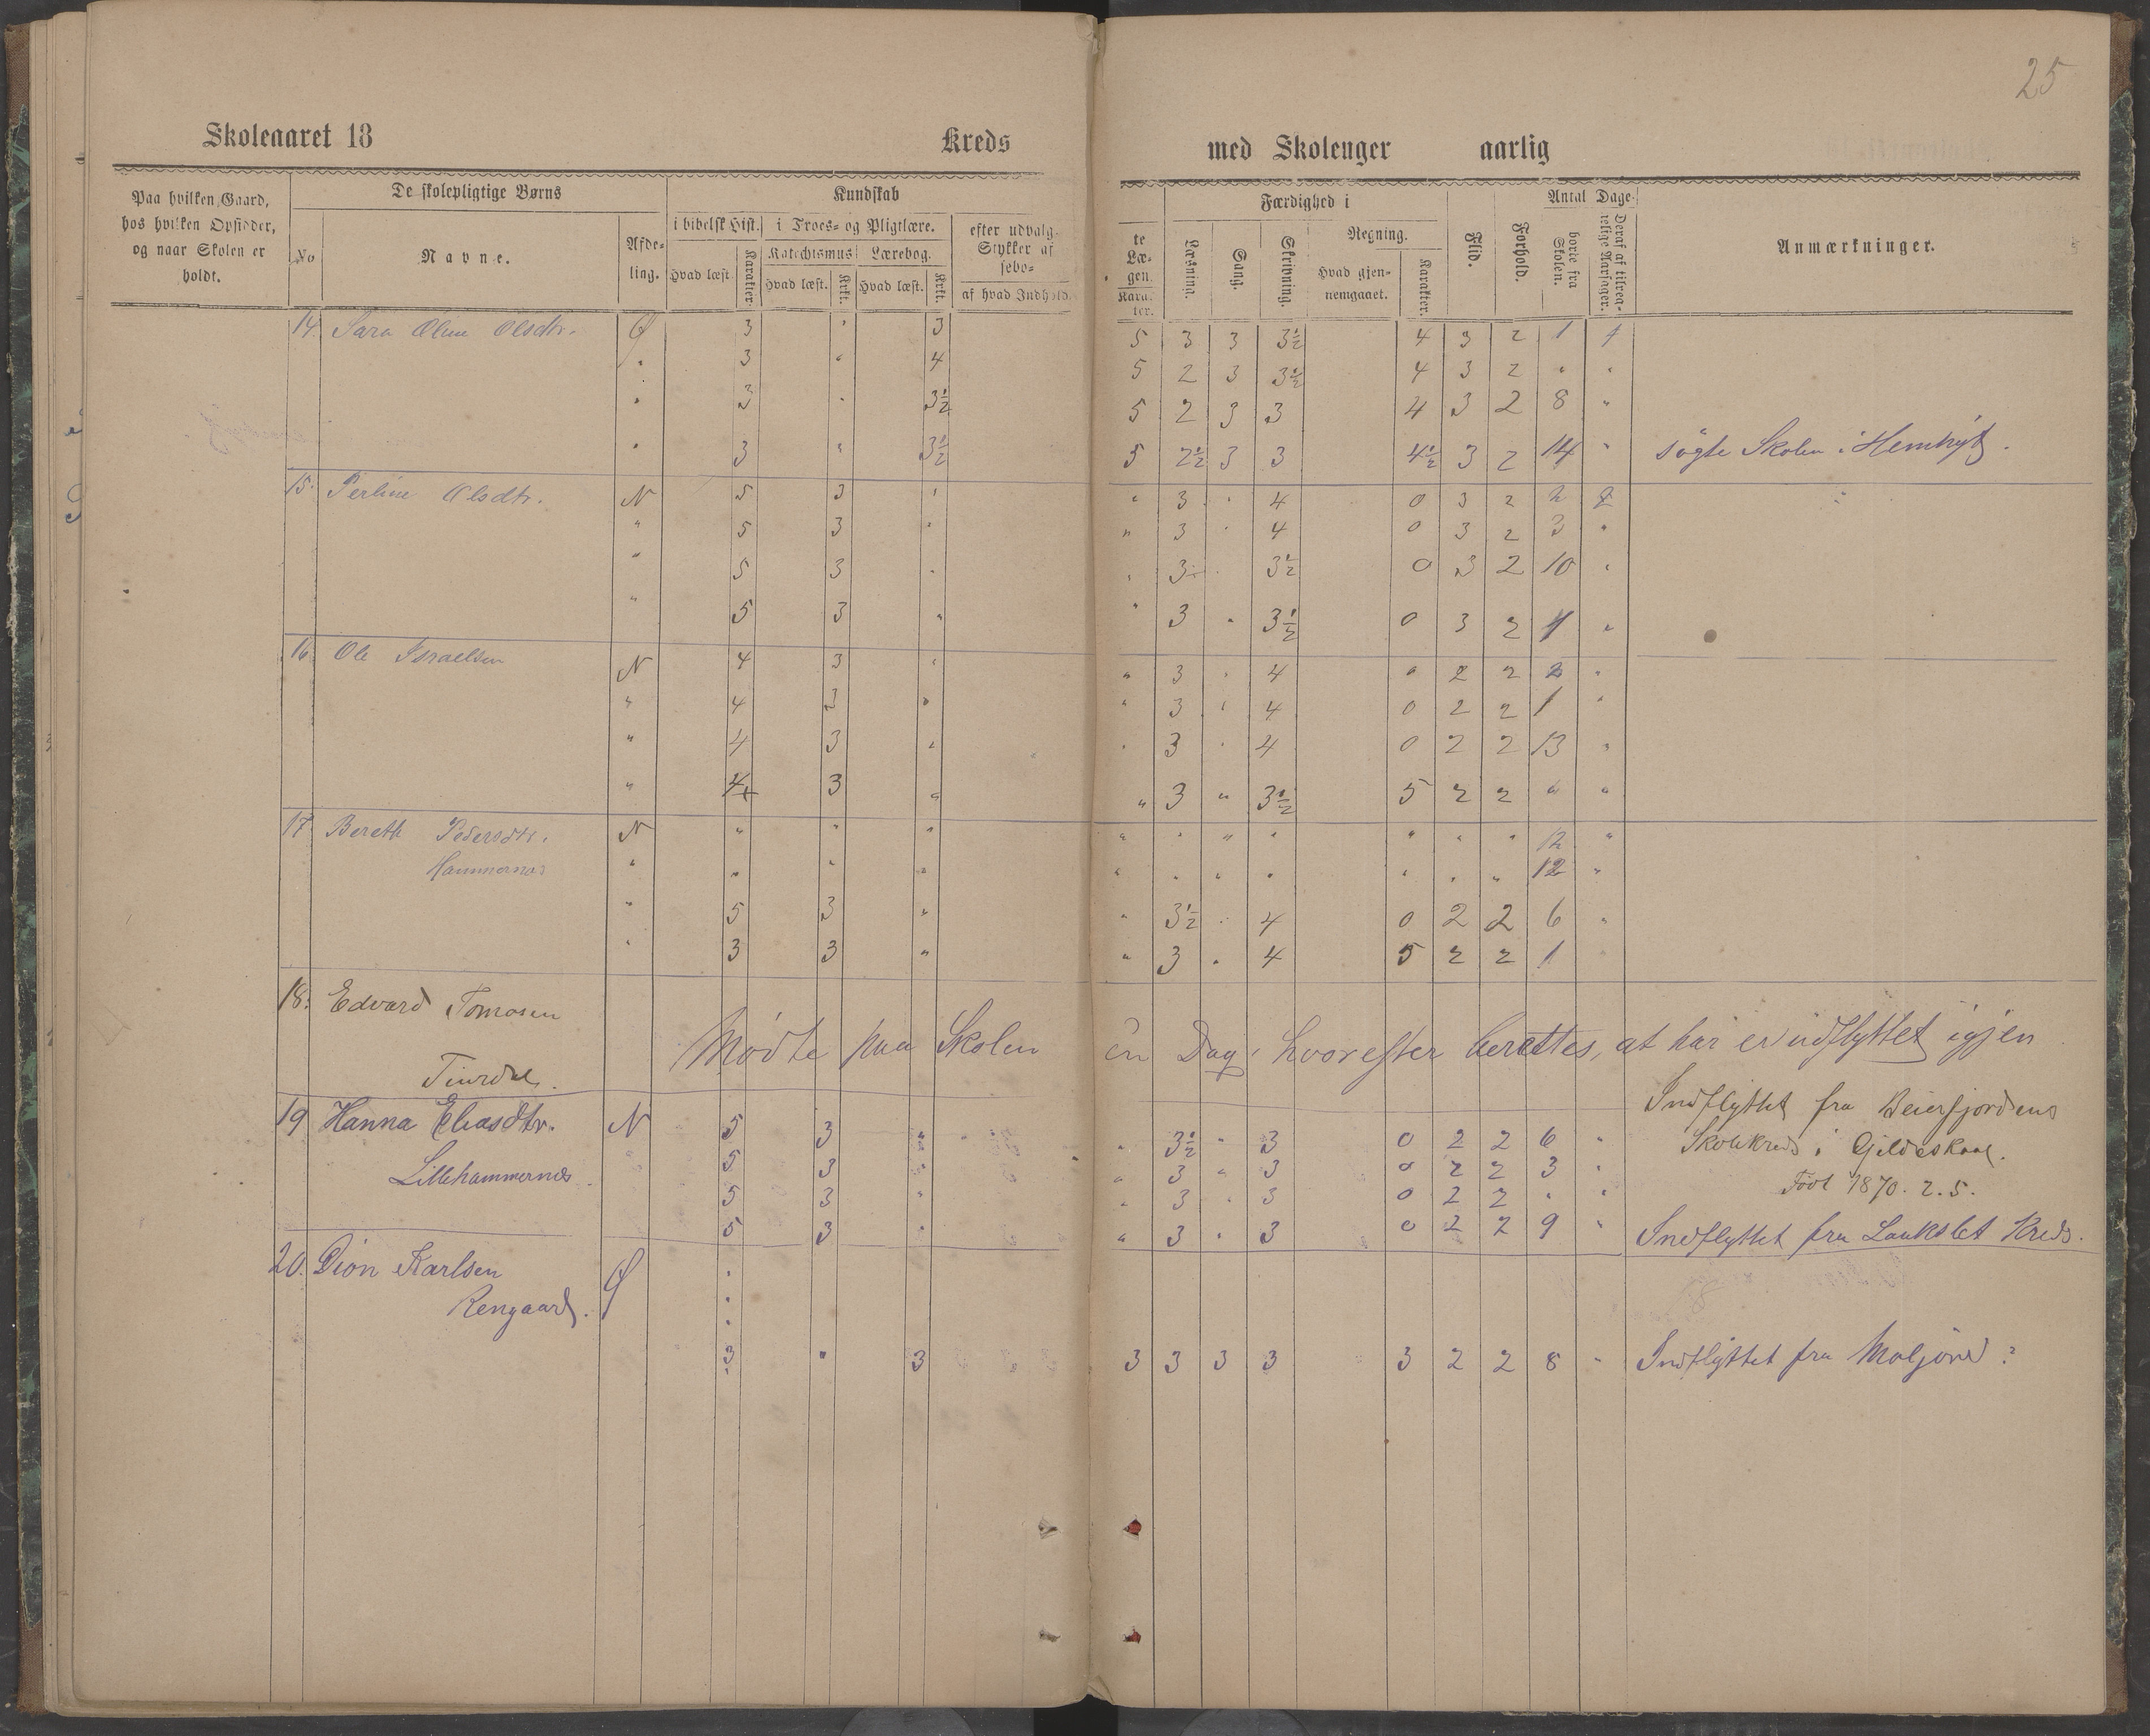 25
Skoleaaret 18 Kreds med Skoleuger aarlig
Paa hvilken Gaard, hos hvilken Opsidder, og naar Skolen er holdt.
De skolepligtige Børns
No
Navne.
Afde-ling.
Kundskab
i bibelsk Hist.
Hvad læst.
Karakter.
i Troes- og Pligtlære.
Katechismus
Hvad læst.
Krkt.
Lærebog.
Hvad læst.
Krkt.
efter udvalg-
Stykker af
sebo-
af hvad Indhold.
te
Læ-
gen.
Karak-
ter.
Færdighed i
Læsning.
Sang.
Skrivning.
Regning.
Hvad gjen-
nemgaaet.
Karakter.
Flid.
Forhold.
Antal Dage
borte fra Skolen.
Deraf af tilreg-
nelige Aarsager.
Anmærkninger.
14. Sara Oline Olsdtr. Ø 3 " 3 5 3 3 3½ 4 3 2 1 1
" 3 " 4 5 2 3 3½ 4 3 2 " "
" 3 " 3½ 5 2 3 3 4 3 2 8 "
" 3 " 3½ 5 2½ 3 3 4½ 3 2 14 " søgte Skolen i
15. Perline Olsdtr. N 5 3 " " 3 " 4 0 3 2 2 2
" 5 3 " " 3 " 4 0 3 2 3 "
" 5 3 " " 3 " 3½ 0 3 2 10 "
" 5 3 " " 3 " 3½ 0 3 2 4 "
16 Ole Israelsen N 4 3 " " 3 " 4 " 2 2 2 "
" 4 3 " " 3 " 4 0 2 2 1 "
" 4 3 " " 3 " 4 0 2 2 13 "
" 4 3 " " 3 " 3½ 5 2 2 " "
17 Bereth Pedersdtr. N " " " " " " " " " " 12 "
Hammernes " " " " " " " " " " " 12 "
" 5 3 " " 3½ " 4 0 2 2 6 "
" 3 3 " " 3 " 4 5 2 2 1 "
18. Edvard Tomasen
Mødte paa Skolen en Dag, hvorefter berettes, at han er udflyttet igjen
19 Hanna Eliasdtr. N 5 3 " " 3½ " 3 0 2 2 6 " Indflyttet fra Beierfjordens
Skolekreds i Gildeskaal.
Lillehammernes. " 5 3 " " 3 " 3 0 2 2 3 "
5 3 " " 3 " 3 0 2 2 " " Født 1870. 2. 5.
5 3 " " 3 " 3 0 2 2 9 " Indflyttet fra Laukslet Kreds.
20. Dion Karlsen Ø "
Rengaard. "
"
3 " 3 3 3 3 3 3 2 2 8 " Indflyttet fra Moljord